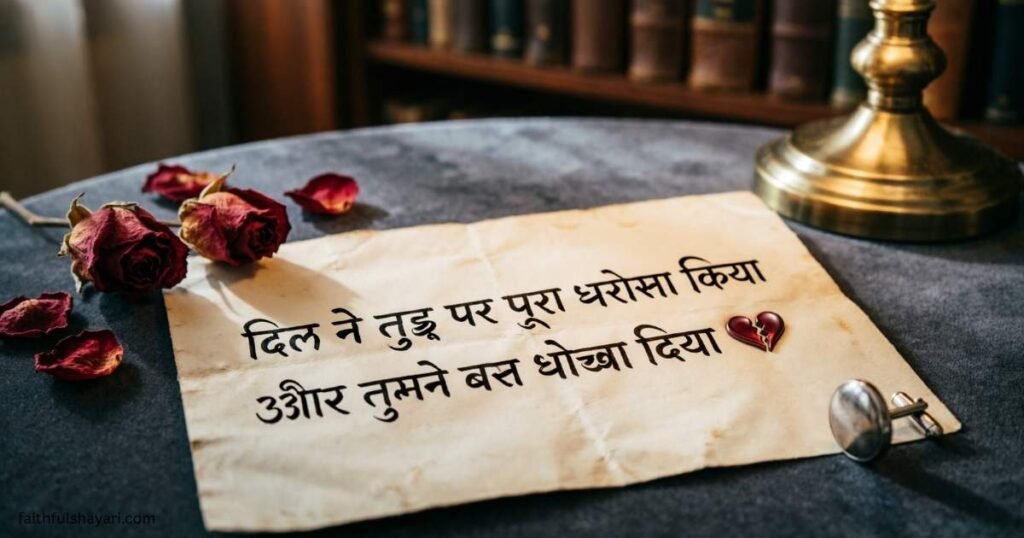 दिल ने पर पूरा धरोसा किया
तुमने बस दिया
faithfulshayari.com